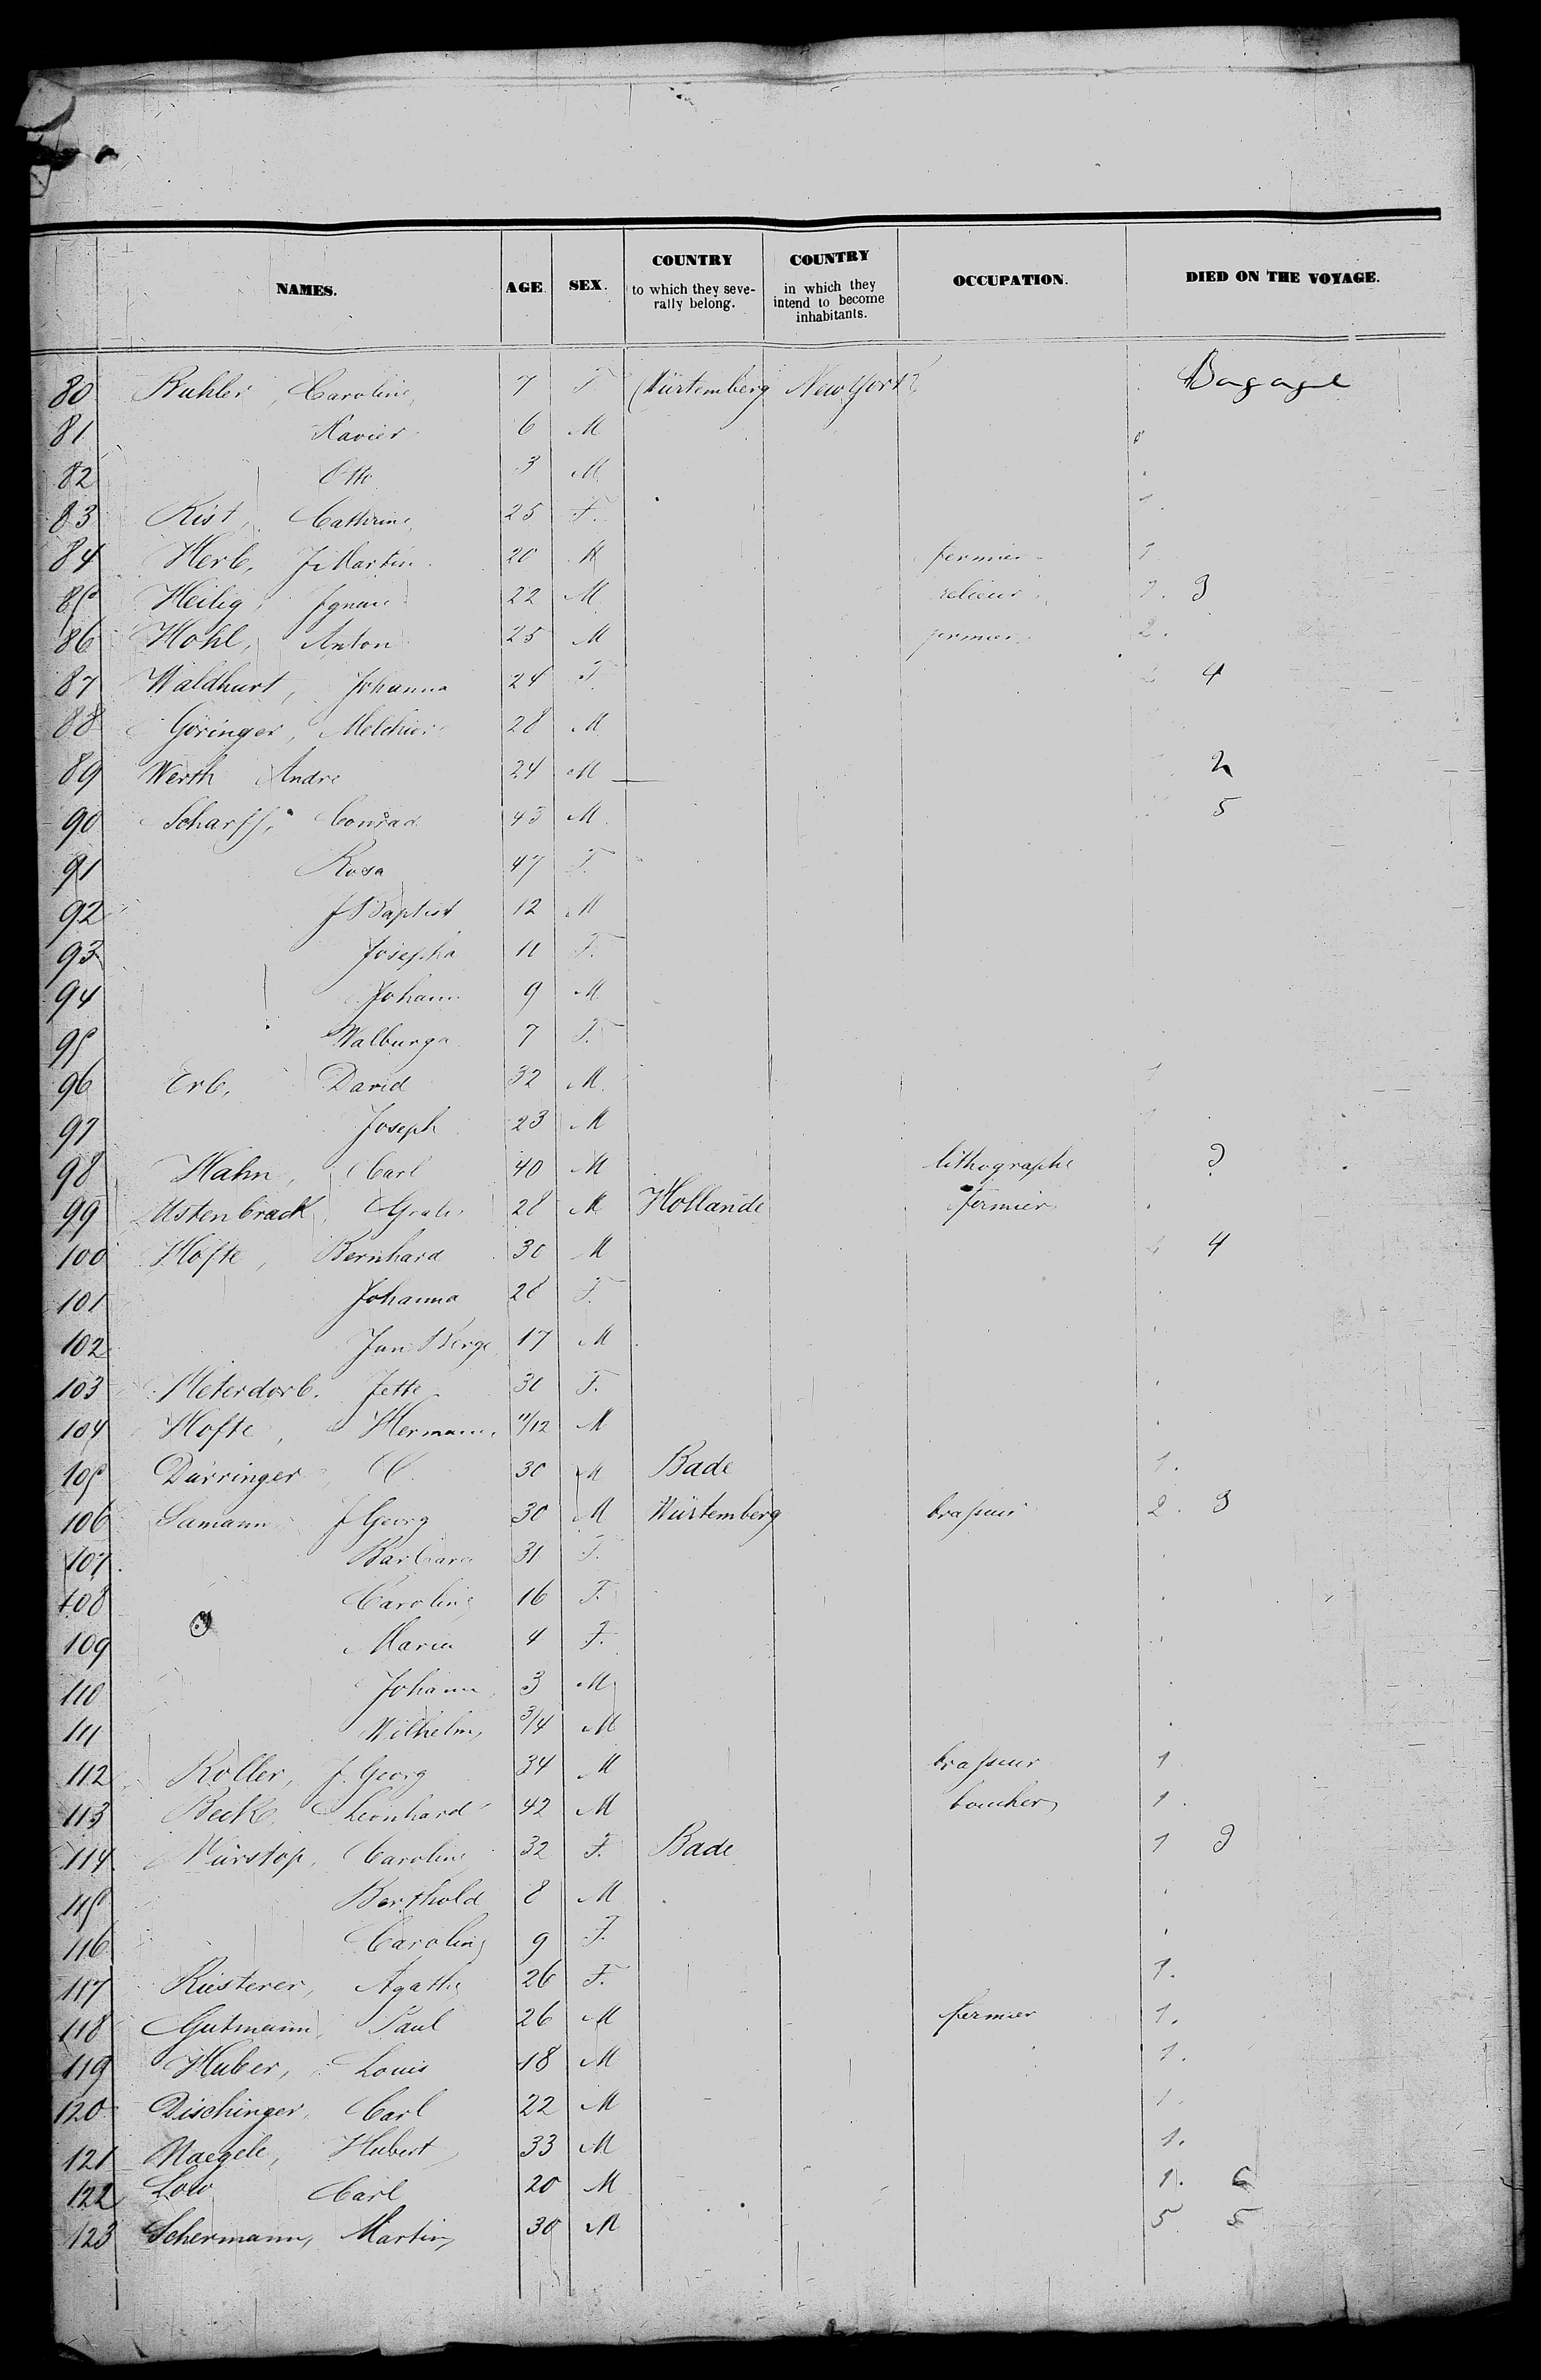 NAMES. AGE. SEX. COUNTRY to which they severally belong. COUNTRY in which they intend to become inhabitants. OCCUPATION. DIED ON THE VOYAGE.
80 Kuhler, Caroline, 7 F Würtemberg New York Bagage
81 Xavier 6 M
82 Otto 3 M
83 Rist, Cathrine, 25 F. 1.
84 Herb, J. Martin 20 M fermier 1
85 Heilig, Ignace 22 M relieur 1. 3
86 Hohl, Anton 25 M fermier 2.
87 Waldhurt, Johanna 24 F 2 4
88 Göringer, Melchior 28 M
89 Werth Andre 24 M 2
90 Scharff, Conrad 43 M. 5
91 Rosa 47 F.
92 J Baptist 12 M
93 Josepha 11 F.
94 Johann 9 M
95 Walburga 7 F.
96 Erb, David 32 M. 1
97 Joseph 23 M 1
98 Hahn, Carl 40 M lithographe 3
99 Ustenbrack, 28 M Hollande fermier
100 Hofte, Bernhard 30 M 4 4
101 Johanna 28 F.
102 Jan Berge 17 M
103 Meterdorb. Jette 30 F.
104 Hofte, Hermann, 11/12 M
105 Dürringer, C. 30 M Bade 1.
106 Samann, J Georg 30 M Würtemberg brasseur 2. 3
107. Barbara 31 F.
108 Caroline 16 F.
109 Maria 4 F.
110 Johann, 3 M
111 Wilhelm, 3/4 M
112 Koller, J. Georg 34 M brasseur 1
113 Beck, Leonhard 42 M boucher 1.
114 Würstop, Caroline 32 F. Bade 1 3
115 Berthold 8 M
116 Caroline 9 F.
117 Riesterer, Agathe 26 F. 1.
118 Gutmann, Paul 26 M fermier 1.
119 Huber, Louis 18 M 1.
120 Dischinger, Carl 22 M 1.
121 Naegele, Hubert, 33 M 1.
122 Low Carl 20 M 1. 6
123 Schermann, Martin, 30 M 5 5